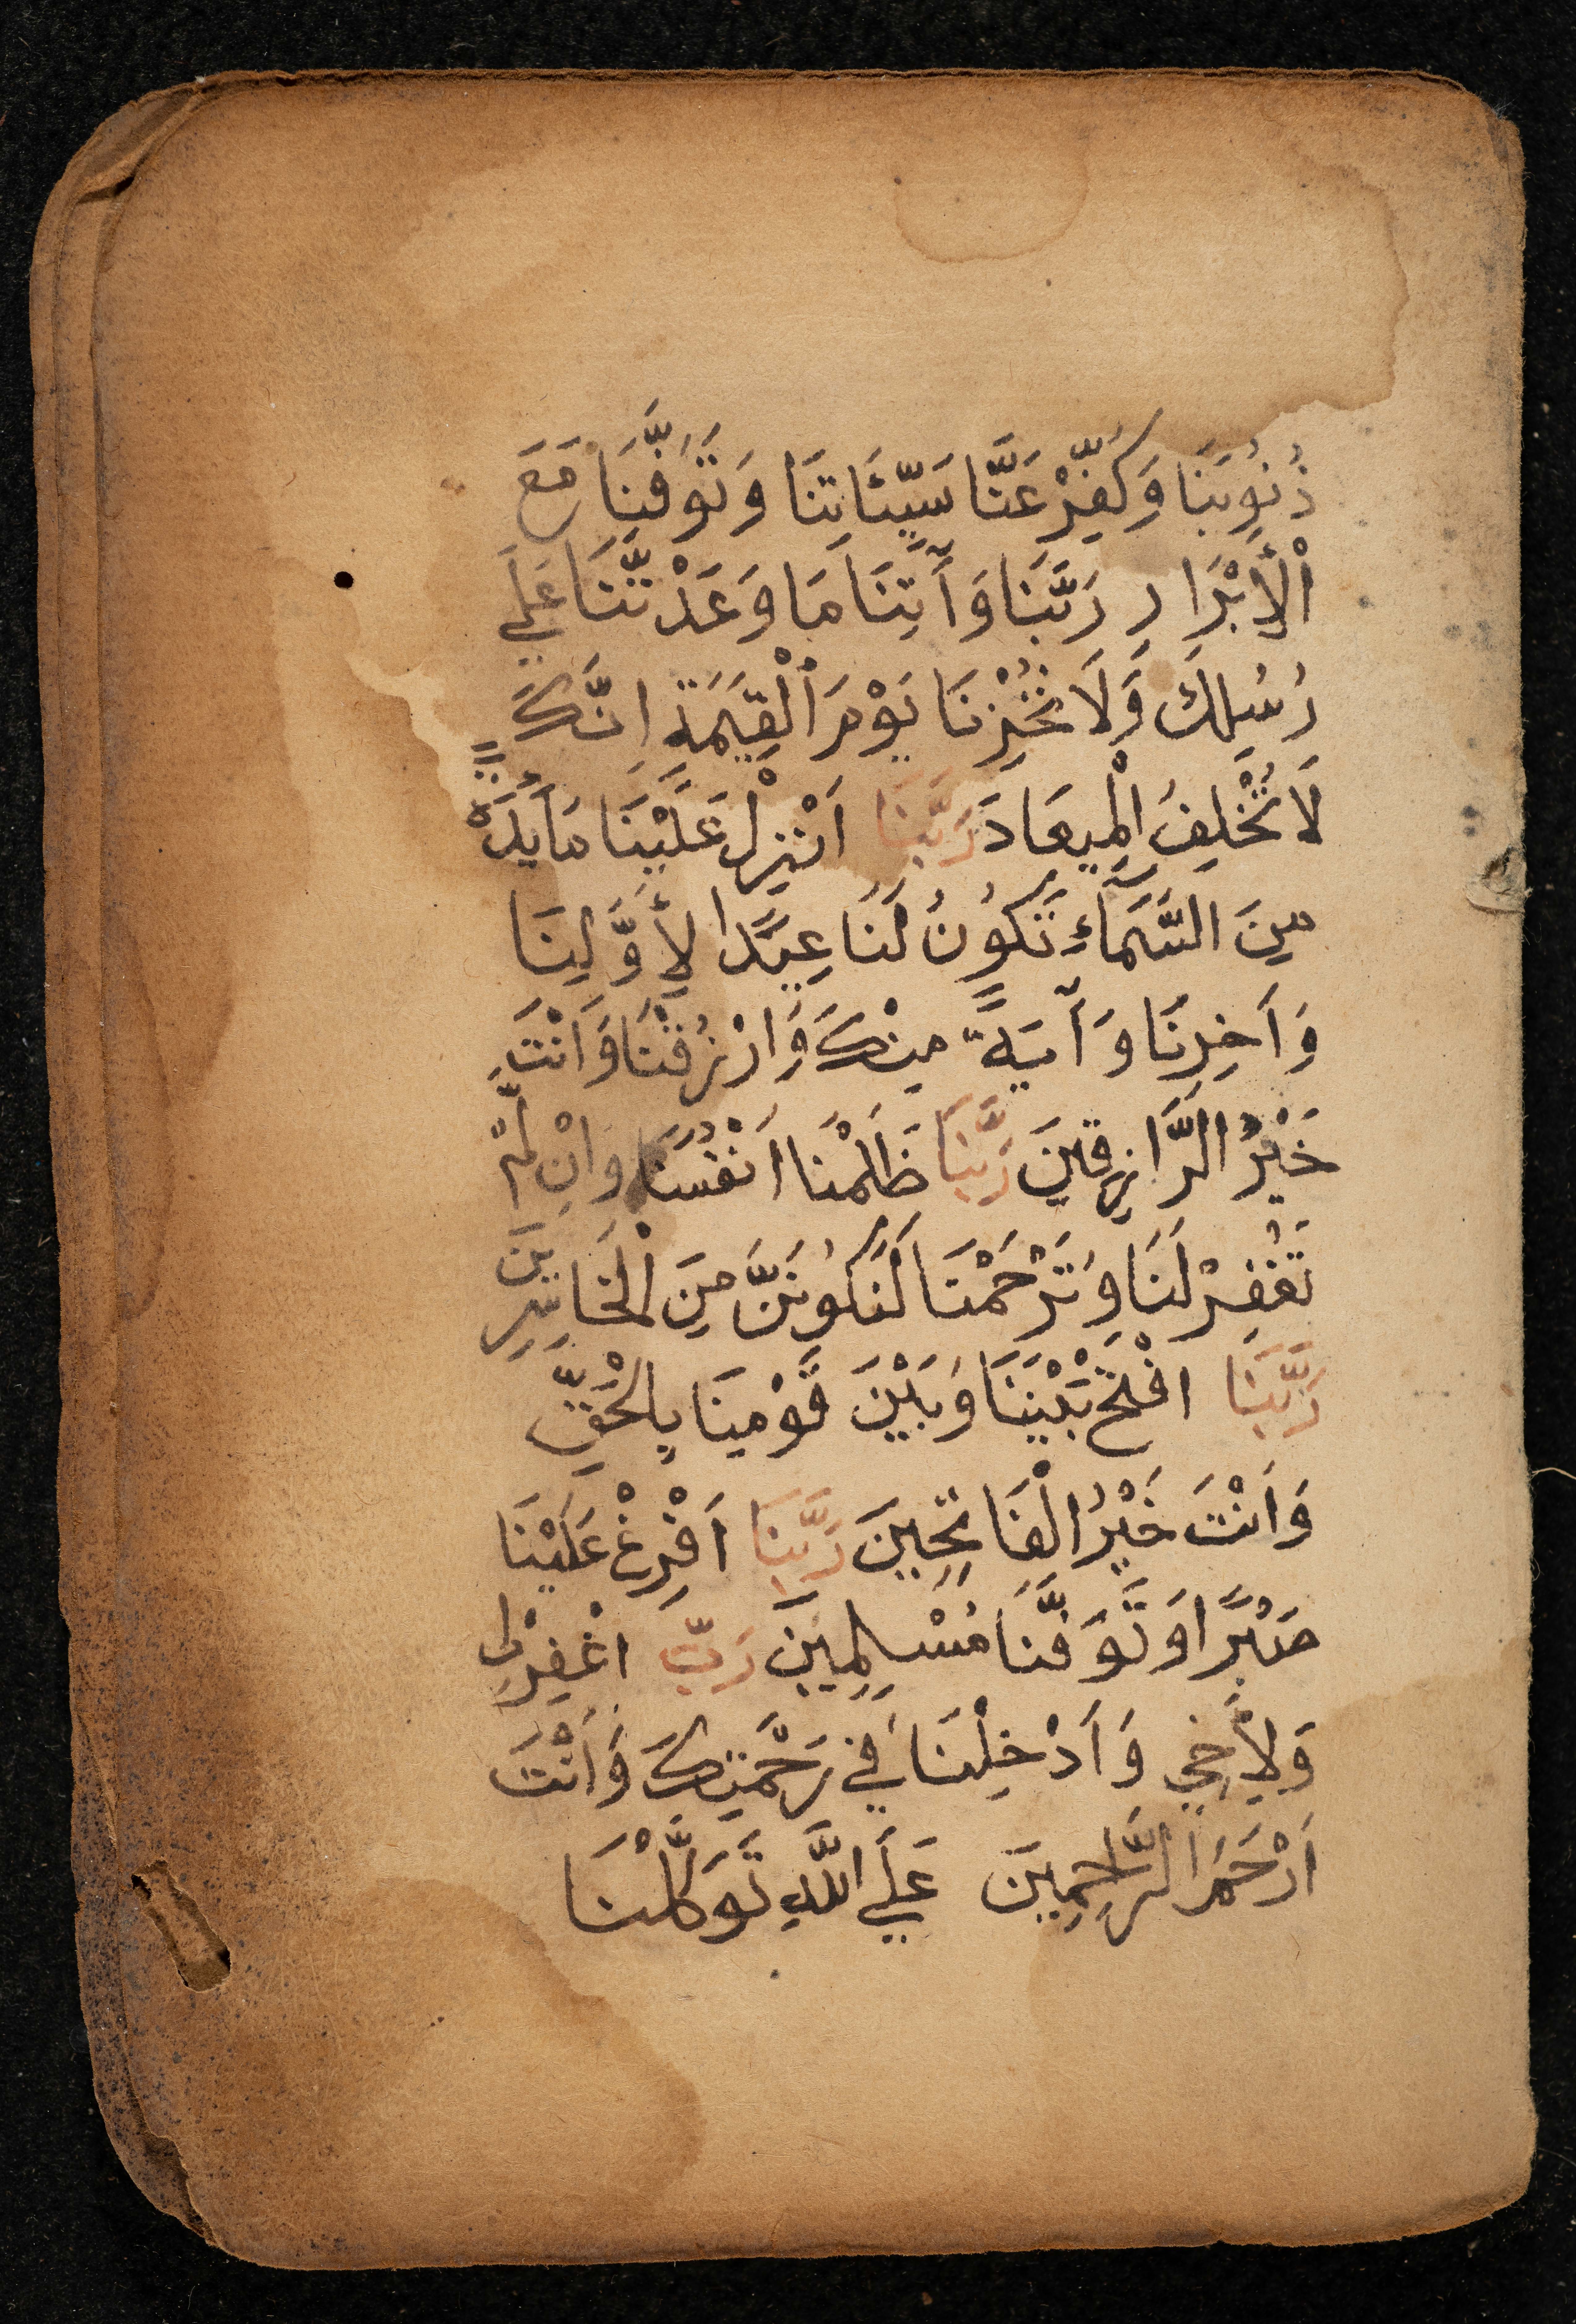 ذُنُوبَنَا وَكَفِّرْ عَنَّا سَيِّئَاتِنَا وَتَوَفَّنَا مَعَ
اْلأَبْرَارِ رَبَّنَا وَآتِنَا مَا وَعَدْتَّنَا عَلَي
رُسُلِكَ وَلَا تُخْزِنَا يَوْمَ الْقِيَمَةِ اِنَّكَ
لَا تُخْلِفُ الْمِيعَادَ رَبَّنَا اَنْزِلْ عَلَيْنَا مَآيِٕدَةً
مِنَ السَّمَآءِ تَكُونُ لَنَا عِيدًا لِأَوَّلِنَا
وَآخِرِنَا وَآيَةً مِنْكَ وَارْزُقْنَا وَاَنْتَ
خَيْرُ الرَّازِقِينَ رَبَّنَا ظَلَمْنَا اَنْفُسَنَا وَاِنْ لَّمْ
تَغْفِرْ لَنَا وَتَرْحَمْنَا لَنَكُونَنَّ مِنَ الْخَاسِرِينَ
رَبَّنَا افْتَحْ بَيْنَنَا وَبَيْنَ قَوْمِنَا بِالْحَقِّ
وَاَنْتَ خَيْرُ الْفَاتِحِينَ رَبَّنَا اَفْرِغْ عَلَيْنَا
صَبْرًا وَتَوَفَّنَا مُسْلِمِينَ رَبِّ اغْفِرْلِي
وَلِأَخِي وَاَدْخِلْنَا فِي رَحْمَتِكَ وَاَنْتَ
اَرْحَمُ الرَّاحِمِينَ عَلَي اللَّهِ تَوَكَّلْنَا